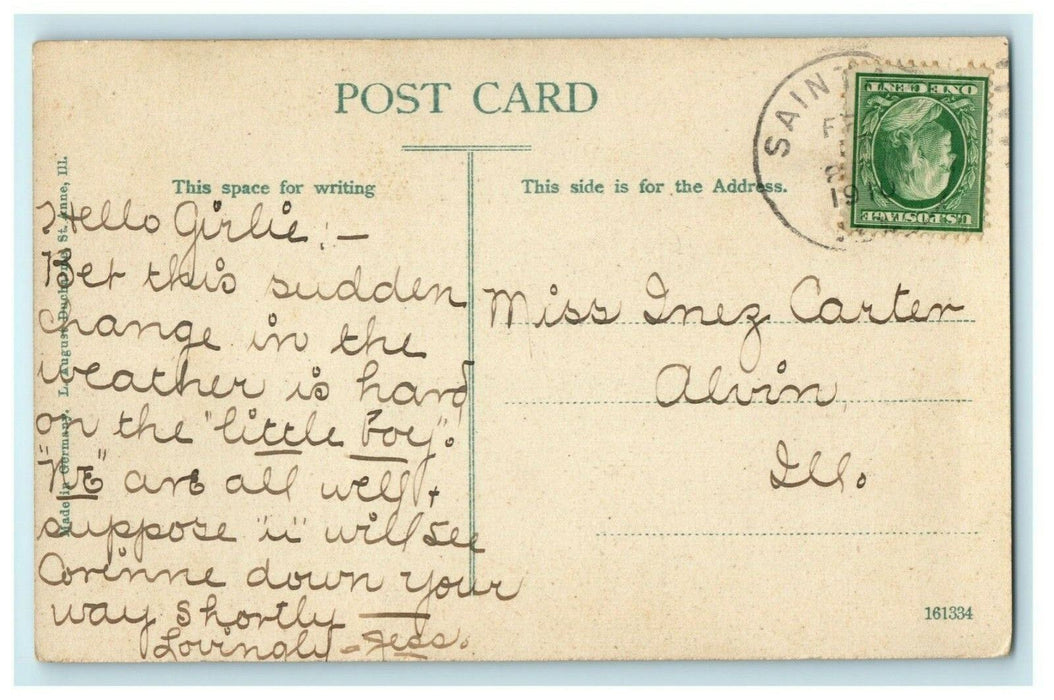 POST CARD
This space for writing
This side is for the Address.
SAINT
19
ONE CENT
U.S. POSTAGE
Hello Girlie:—
Bet this sudden
change in the
weather is hard
on the "little boy".
"WE" are all well +
suppose "u" will see
Corinne down your
way shortly —
Lovingly - Jess.
Miss Inez Carter
Alvin,
Ill.
Made in Germany. L. August St. Anne, Ill.
161334